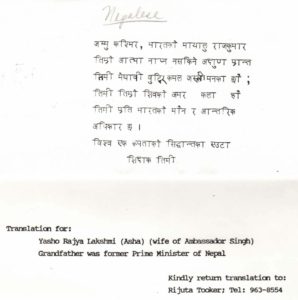 Nepalese
जम्मु कश्मिर, भारतको मायालु राजकुमार
तिम्रो आत्मा नाप्न नसकिने अक्षुण प्रान्त
तिमी मेधावी बुद्धि कमल मनका हौ ;
तिमी तिम्रो शिवको अमर कला हौ
तिमी प्रति भारतको मौन र आन्तरिक
अधिकार छ ।
विश्व एक रूपताको सिद्धान्तका एउटा
शिक्षक तिमी
Translation for:
Yasho Rajya Lakshmi (Asha) (wife of Ambassador Singh)
Grandfather was former Prime Minister of Nepal
Kindly return translation to:
Rijuta Tooker; Tel: 963-8554